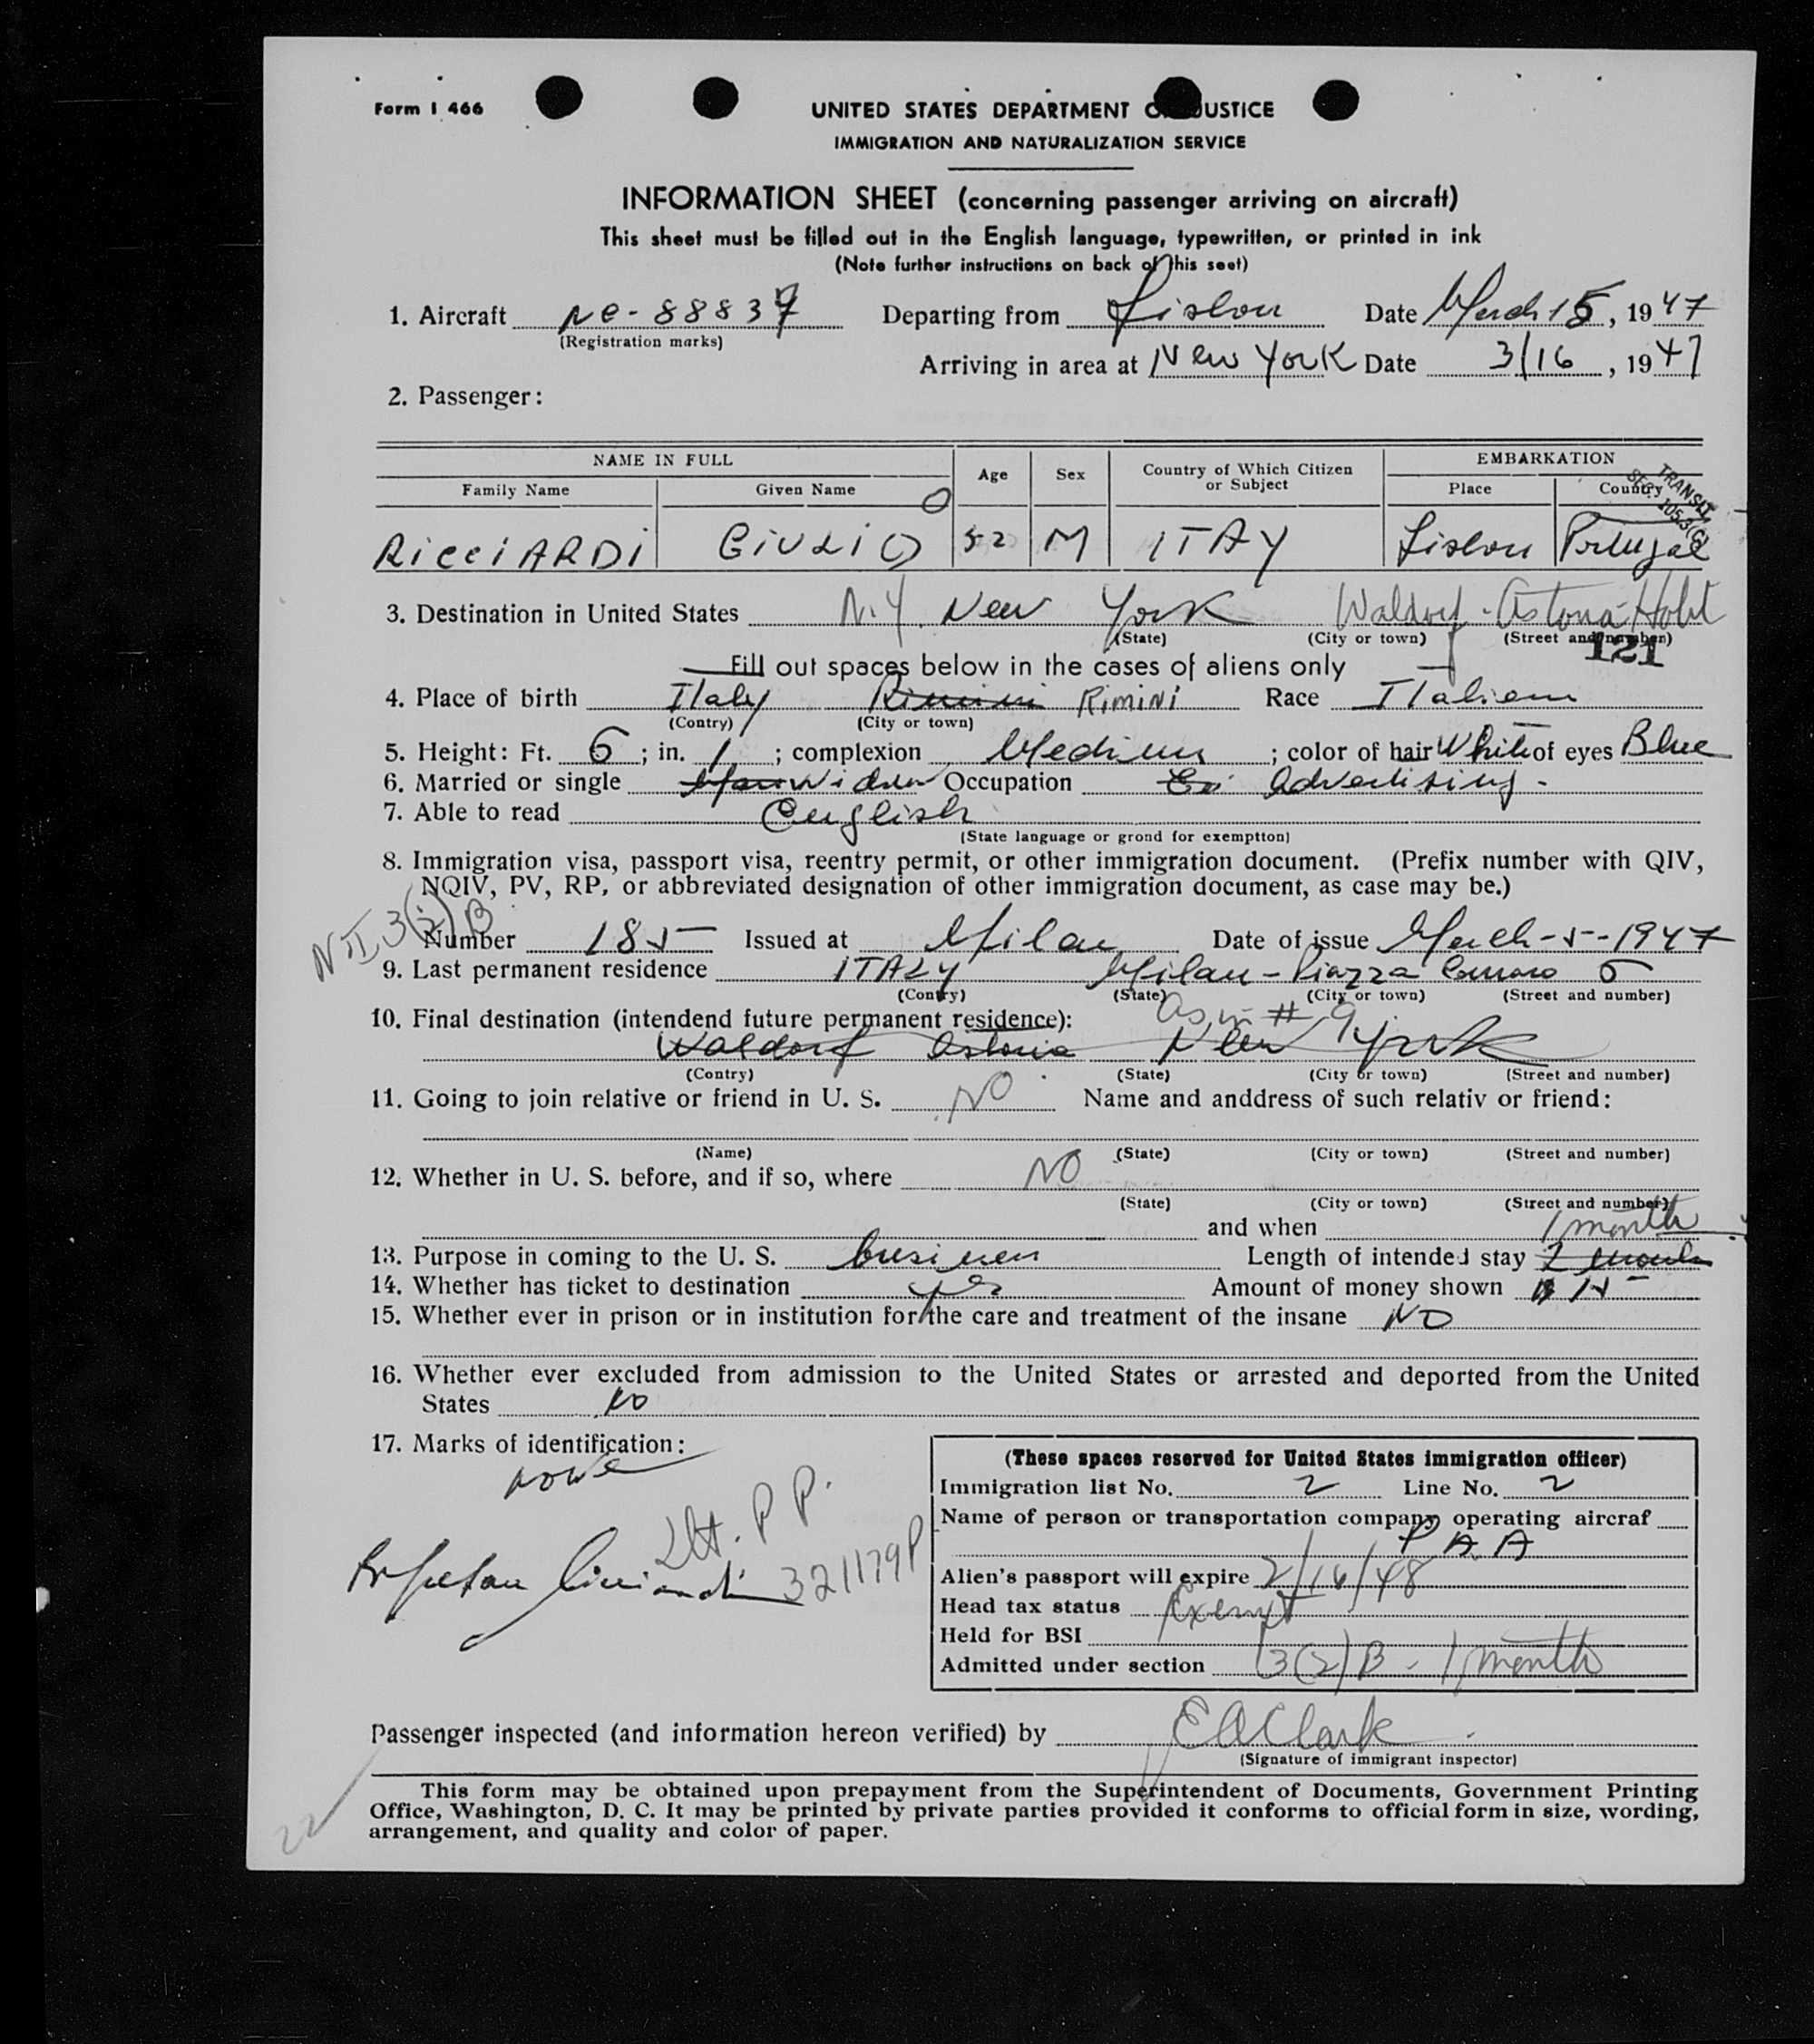 Form I 466
UNITED STATES DEPARTMENT OF JUSTICE
IMMIGRATION AND NATURALIZATION SERVICE
INFORMATION SHEET (concerning passenger arriving on aircraft)
This sheet must be filled out in the English language, typewritten, or printed in ink
(Note further instructions on back of this seet)
1. Aircraft NC-88837 Departing from Lisbon Date March 15, 1947
(Registration marks)
Arriving in area at New York Date 3/16, 1947
2. Passenger:
NAME IN FULL Age Sex Country of Which Citizen or Subject EMBARKATION
Family Name Given Name Place Country
TRANSIT
SEC. 105.3(C)
RicciARDi GiULiO 52 M ITAY Lisbon Portugal
3. Destination in United States N.Y. New York Waldorf-Astoria Hotel
(State) (City or town) (Street and number)
121
Fill out spaces below in the cases of aliens only
4. Place of birth Italy Rimini RiMiNi Race Italian
(Contry) (City or town)
5. Height: Ft. 6; in. 1; complexion Medium; color of hair White of eyes Blue
6. Married or single Widow Occupation Advertising -
7. Able to read English
(State language or grond for exemptton)
8. Immigration visa, passport visa, reentry permit, or other immigration document. (Prefix number with QIV,
NQIV, PV, RP, or abbreviated designation of other immigration document, as case may be.)
3(2)B
Number 185 Issued at Milan Date of issue March-5-1947
9. Last permanent residence ITALY Milan - Piazza 5
(Contry) (State) (City or town) (Street and number)
as in # 9
10. Final destination (intendend future permanent residence):
Waldorf Astoria New York
(Contry) (State) (City or town) (Street and number)
11. Going to join relative or friend in U. S. NO. Name and anddress of such relativ or friend:
(Name) (State) (City or town) (Street and number)
12. Whether in U. S. before, and if so, where NO
(State) (City or town) (Street and number)
and when
1 month
13. Purpose in coming to the U. S. business Length of intended stay 2 months
14. Whether has ticket to destination yes Amount of money shown
15. Whether ever in prison or in institution for the care and treatment of the insane NO
16. Whether ever excluded from admission to the United States or arrested and deported from the United
States NO
17. Marks of identification:
none
P.P.
321179P
(These spaces reserved for United States immigration officer)
Immigration list No. 2 Line No. 2
Name of person or transportation company operating aircraf
P.A.A
Alien's passport will expire 2/16/48
Head tax status Exempt
Held for BSI
Admitted under section 3(2)B - 1 month
Passenger inspected (and information hereon verified) by E A Clark
(Signature of immigrant inspector)
This form may be obtained upon prepayment from the Superintendent of Documents, Government Printing
Office, Washington, D. C. It may be printed by private parties provided it conforms to official form in size, wording,
arrangement, and quality and color of paper.
22